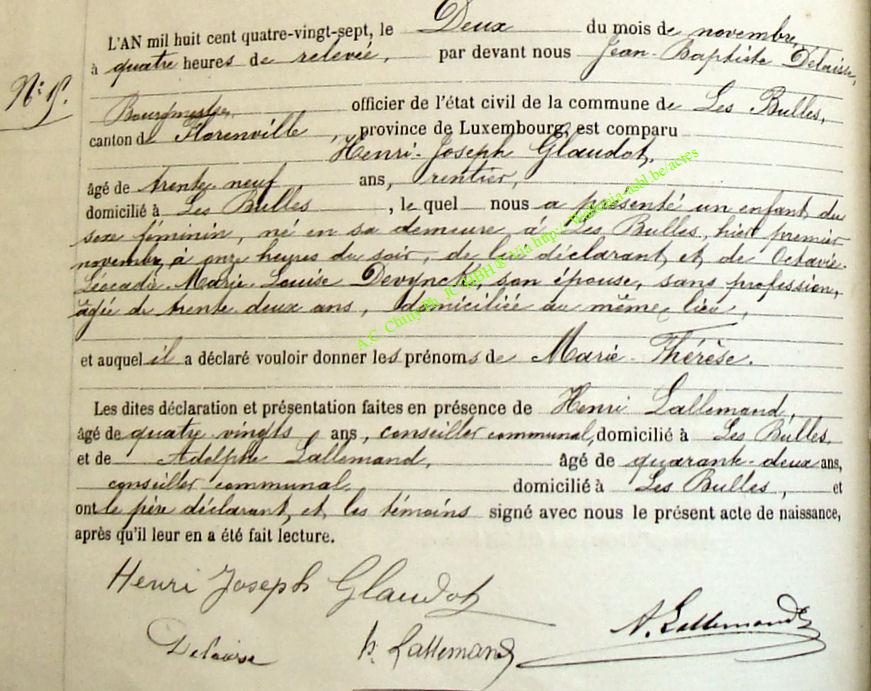 L'AN mil huit cent quatre-vingt-sept, le Deux du mois de novembre,
à quatre heures de relevée, par devant nous Jean-Baptiste Delaisse,
N° 9.
Bourgmestre, officier de l'état civil de la commune de Les Bulles,
canton de Florenville, province de Luxembourg, est comparu
Henri-Joseph Glaudot,
âgé de trente neuf ans, rentier,
domicilié à Les Bulles, le quel nous a présenté un enfant du
sexe féminin, né en sa demeure à Les Bulles, hier premier
novembre, à onze heures du soir, de lui déclarant et de Octavie-
Léocadie-Marie-Louise Devynck, son épouse, sans profession,
âgée de trente deux ans, domiciliée au même lieu,
et auquel il a déclaré vouloir donner les prénoms de Marie-Thérèse.
Les dites déclaration et présentation faites en présence de Henri Lallemand,
âgé de quatre-vingts ans, conseiller communal, domicilié à Les Bulles,
et de Adolphe Lallemand, âgé de quarante-deux ans,
conseiller communal, domicilié à Les Bulles, et
ont le père déclarant et les témoins signé avec nous le présent acte de naissance,
après qu'il leur en a été fait lecture.
Henri Joseph Glaudot
Delaisse h. Lallemand A. Lallemand